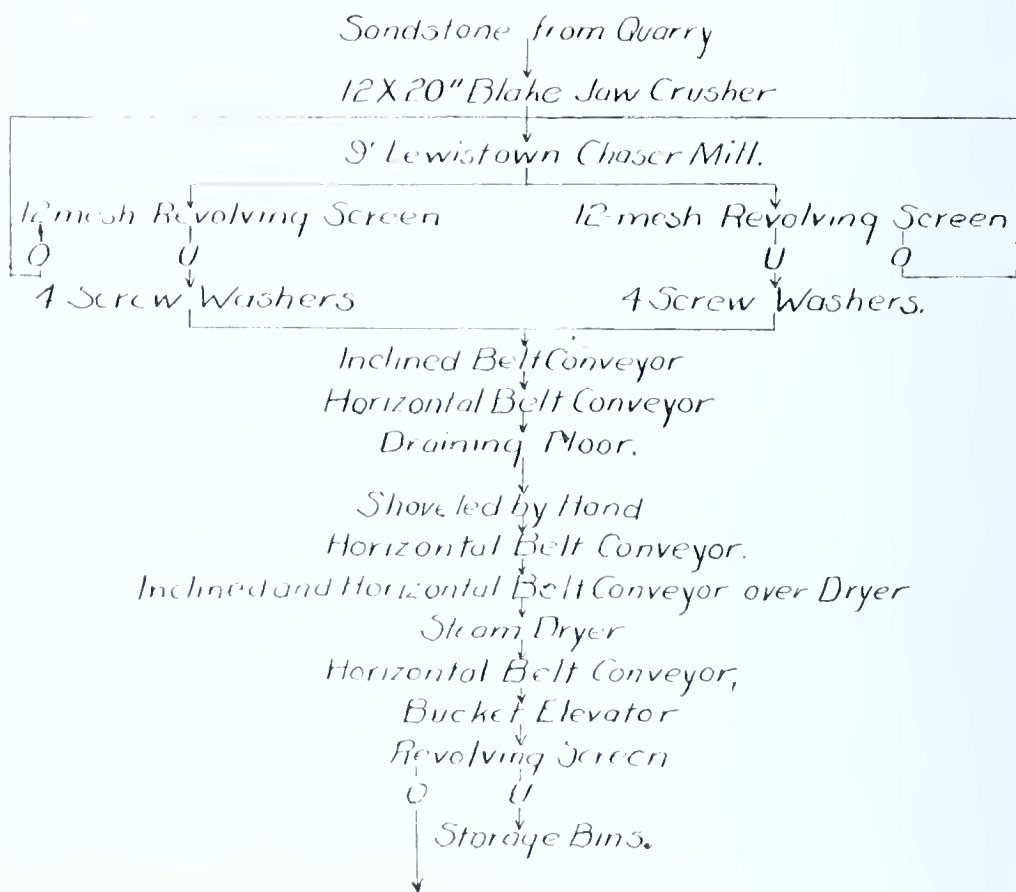 Sandstone from Quarry
12X20" Blake Jaw Crusher
9' Lewistown Chaser Mill.
12-mesh Revolving Screen 12-mesh Revolving Screen
O U U O
4 Screw Washers 4 Screw Washers.
Inclined Belt Conveyor
Horizontal Belt Conveyor
Draining Floor.
Shoveled by Hand
Horizontal Belt Conveyor.
Inclined and Horizontal Belt Conveyor over Dryer
Steam Dryer
Horizontal Belt Conveyor,
Bucket Elevator
Revolving Screen
O U
Storage Bins.